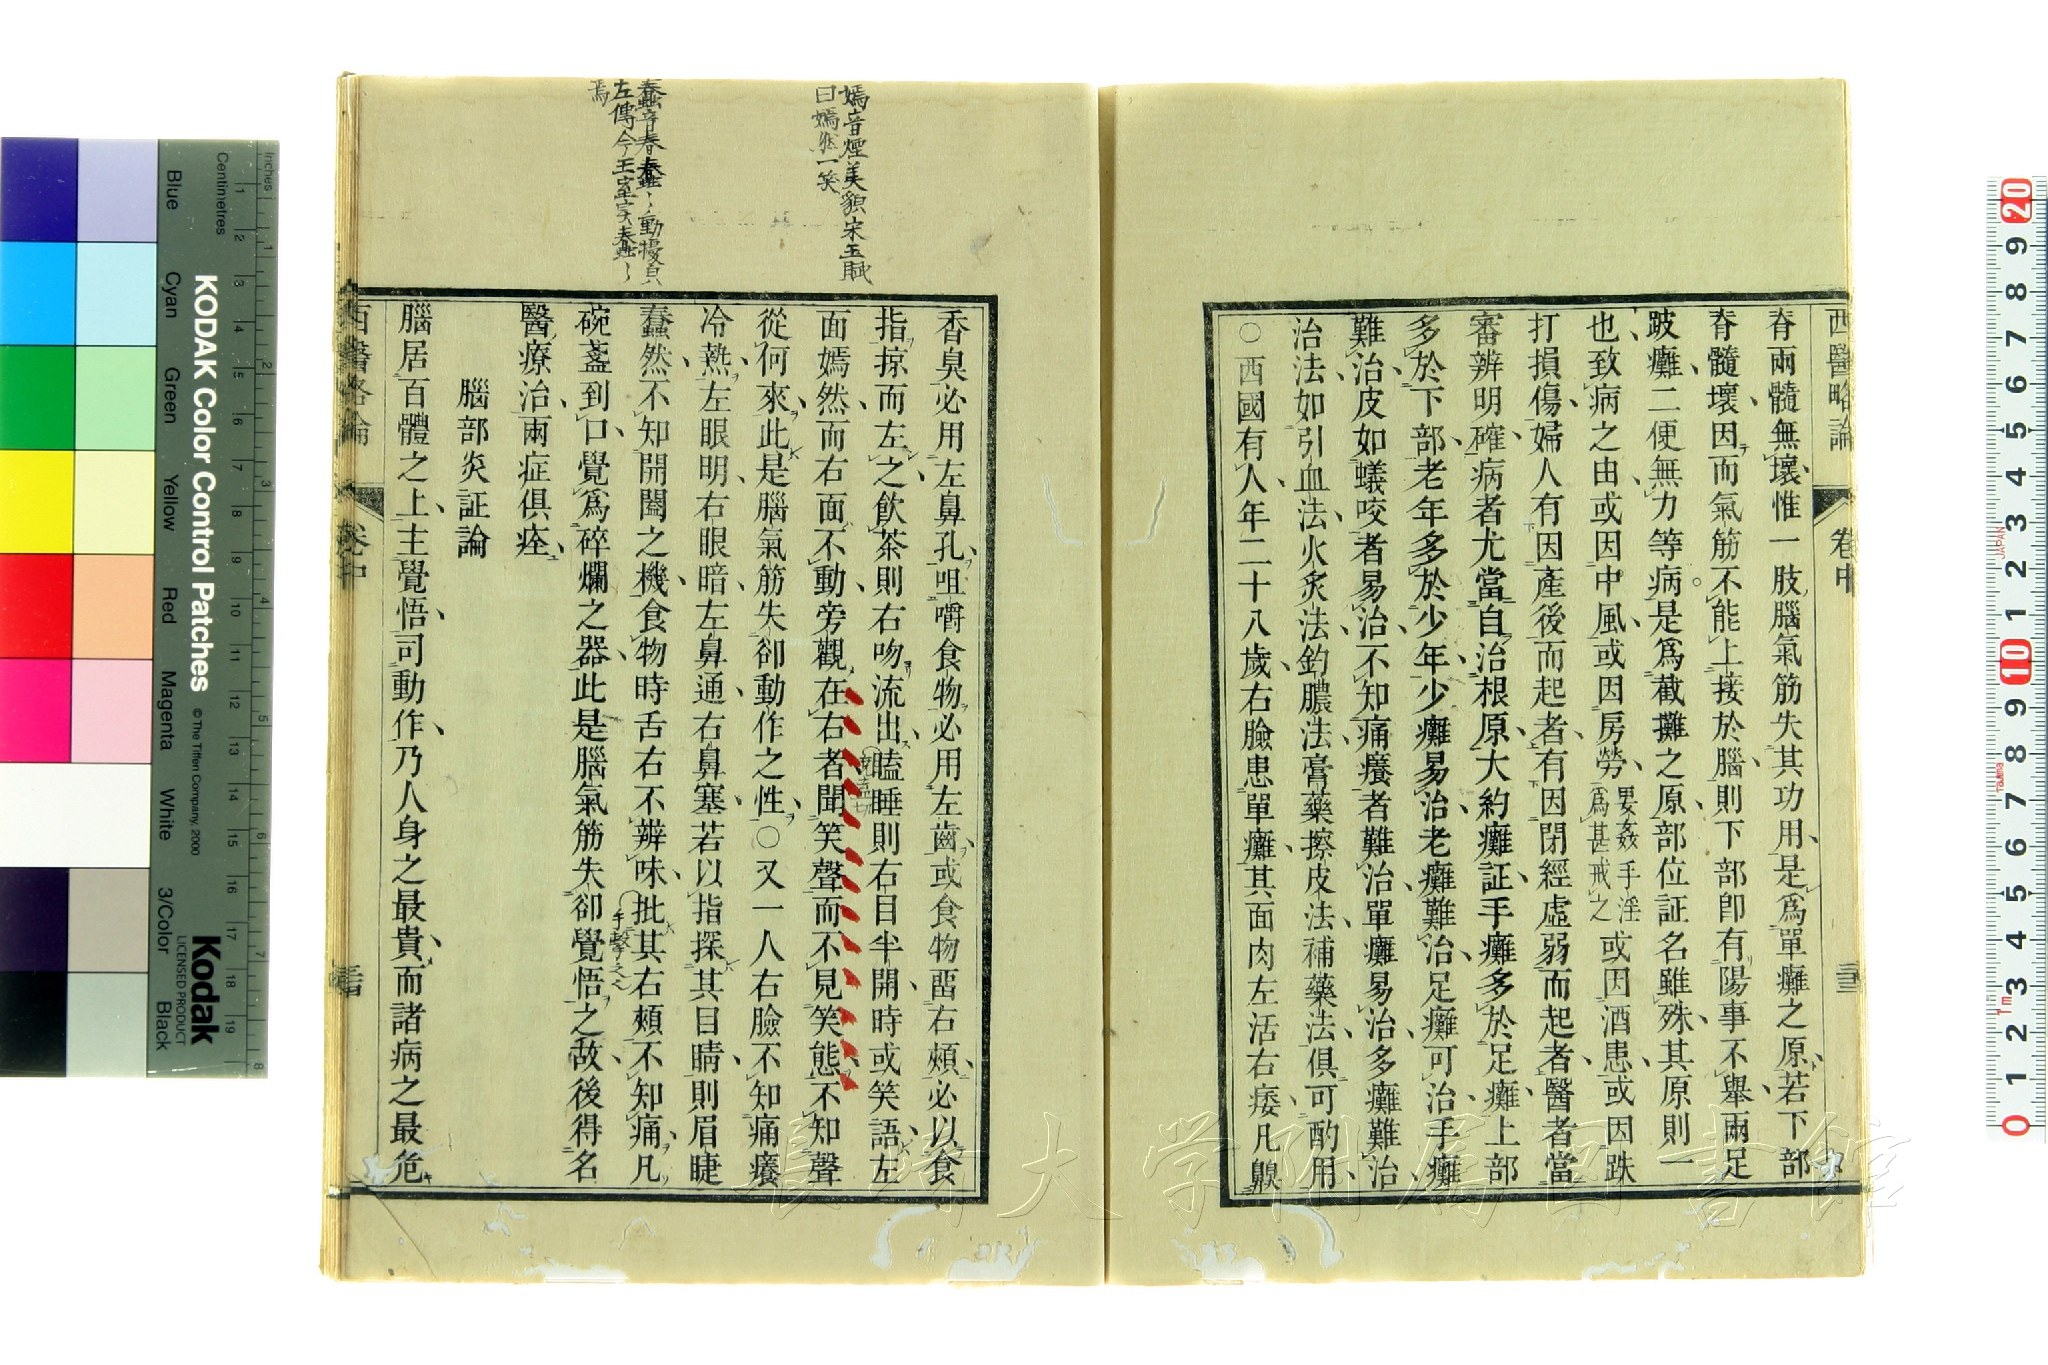 西醫略論 卷中 三
脊兩髓無壞惟一肢腦氣筋失其功用是爲單癱之原若下部
脊髓壞因而氣筋不能上接於腦則下部卽有陽事不舉兩足
跛癱二便無力等病是爲截攤之原部位証名雖殊其原則一
也致病之由或因中風或因房勞娶姦手淫爲甚戒之或因酒患或因跌
打損傷婦人有因產後而起者有因閉經虛弱而起者醫者當
審辨明確病者尤當自治根原大約癱証手癱多於足癱上部
多於下部老年多於少年少癱易治老癱難治足癱可治手癱
難治皮如蟻咬者易治不知痛癢者難治單癱易治多癱難治
治法如引血法火炙法釣膿法膏藥擦皮法補藥法俱可酌用
○西國有人年二十八歲右臉患單癱其面肉左活右痿凡齅
嫣音煙美貌宋玉賦
曰嫣然一笑
蠢音春蠢〻動擾皃
左傳今王室実蠢〻
焉
香臭必用左鼻孔咀嚼食物必用左齒或食物畱右頰必以食
指掠而左之飲茶則右吻流出瞌睡則右目半開時或笑語左
面嫣然而右面不動旁觀在右者聞笑聲而不見笑態不知聲
從何來此是腦氣筋失卻動作之性○又一人右臉不知痛癢
冷熱左眼明右眼暗左鼻通右鼻塞若以指探其目睛則眉睫
蠢然不知開闔之機食物時舌右不辨味批其右頰不知痛凡
手擊之
碗盞到口覺爲碎爛之器此是腦氣筋失卻覺悟之故後得名
醫療治兩症俱痊
腦部炎証論
腦居百體之上主覺悟司動作乃人身之最貴而諸病之最危
西醫略論 卷中
長崎大学附属図書館
KODAK Color Control Patches
© The Tiffen Company, 2000
Kodak
LICENSED PRODUCT
Blue Cyan Green Yellow Red Magenta White 3/Color Black
Inches
Centimetres